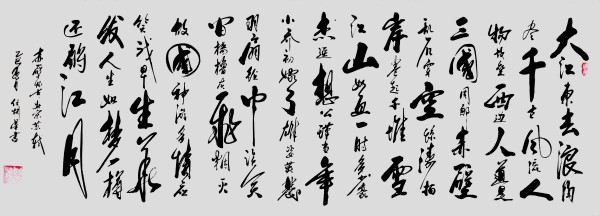 大江东去浪淘
尽千古风流人
物故垒西边人道是
三國周郎赤壁
乱石穿空惊涛拍
岸卷起千堆雪
江山如画一时多少豪
杰遥想公瑾当年
小乔初嫁了雄姿英发
羽扇纶巾谈笑
间樯橹灰飞烟灭
故國神游多情应
笑我早生华
发人生如梦一樽
还酹江月
赤壁怀古
书